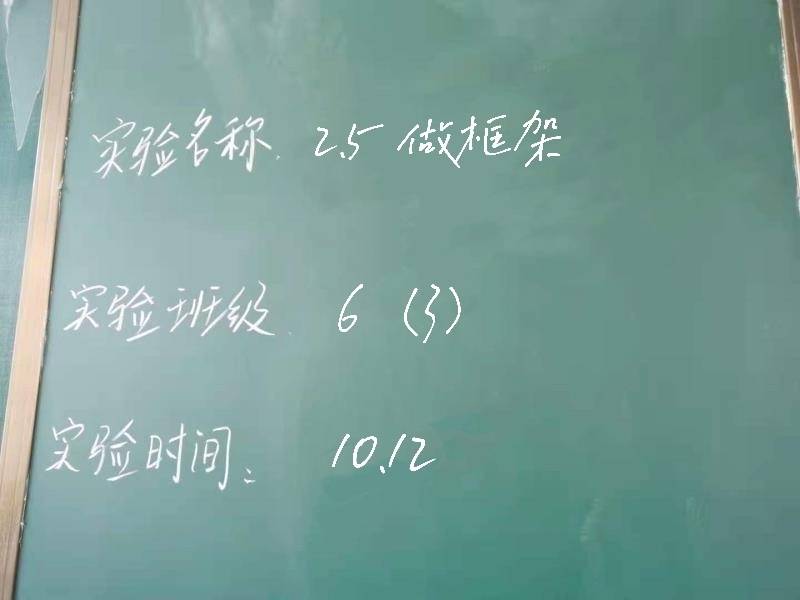 实验名称. 2.5 做框架
实验班级. 6 (3)
实验时间: 10.12